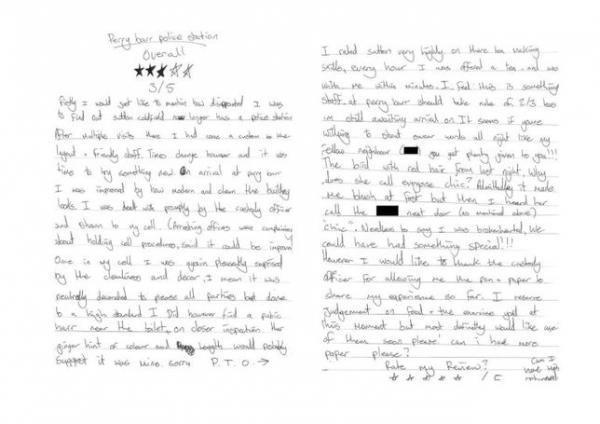 Perry barr police station
Overall
3/5
Firstly I would just like to mention how disappointed I was
to find out sutton coldfield no longer has a police station
After multiple visits there I had become a custom to the
layout + friendly staff. Times change however and it was
time to try something new. On arrival at perry barr
I was impressed by how modern and clean the building
looks. I was dealt with promptly by the custody officer
and shown to my cell. (Arresting officers were complaining
about holding cell procedures, said it could be improved
Once in my cell I was again pleasantly surprised
by the cleanliness and decor, I mean it was
neutrally decorated to please all parties but done
to a high standard I Did however find a pubic
hair near the toilet, on closer inspection the
ginger hint of colour and length would probably
suggest it was mine. sorry P.T.O. →
I rated sutton very highly on there tea making
skills, every hour I was offered a tea and was
with me within minutes. I feel this is something
staff at perry barr should take note of 2/3 teas
im still awaiting arrival on. It seems if youre
willing to shout swear words all night like my
fellow neighbour you get plenty given to you!!!
The bird with red hair from last night. Why
does she call everyone chic? Admittedly it made
me blush at first but then I heard her
call the next door (as mentioned above)
"chic". Needless to say I was brokenhearted. We
could have had something special!!!
However I would like to thank the custody
officer for allowing me the pen + paper to
share my experience so far. I reserve
judgement on food + the exercise yard at
this moment but most definitley would like use
of them soon please! can i have more
paper please?
Rate my Review? Can I
/ 5